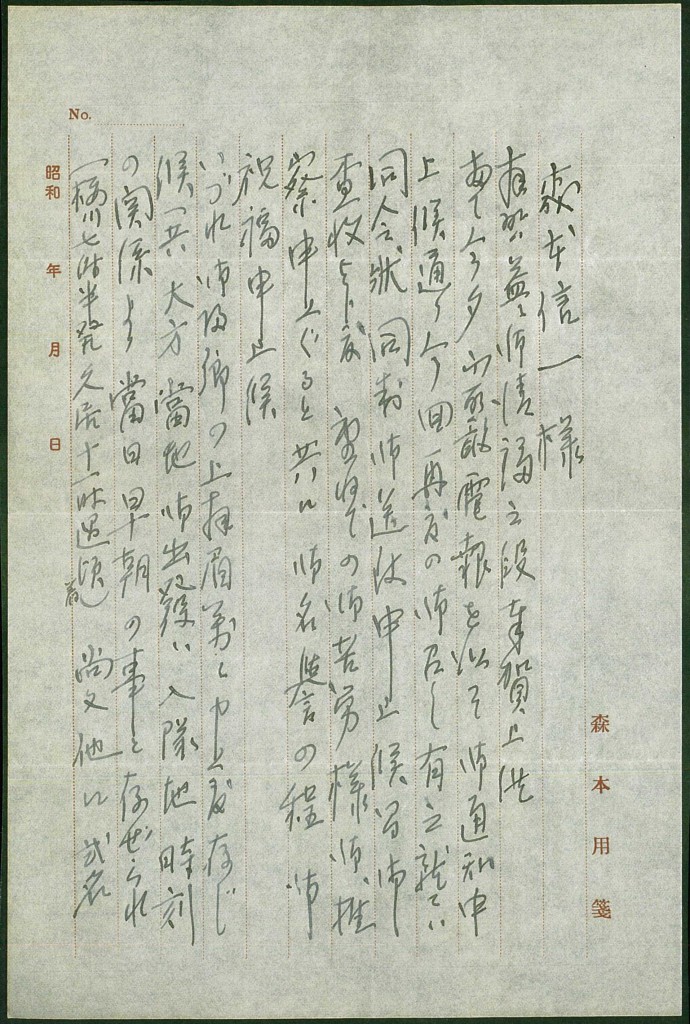 森本用箋
森本信一様
拝啓益々御清福之段奉賀上候
陳者今夕不取敢電報を以て御通知申
上候通り今回再度の御召し有之就ては
同令状同封御送付申上候間御
査収上下度 重ねての御苦労様御推
察申上ぐると共に御名誉の程 御
祝福申上候
いづれ御帰郷の上拝眉万々申上度存じ
候へ共大方當地御出発は入隊地時刻
の関係より當日早朝の事と存ぜられ
七時半発久居十一時過頃着 尚又他に
No.
昭和 年 月 日